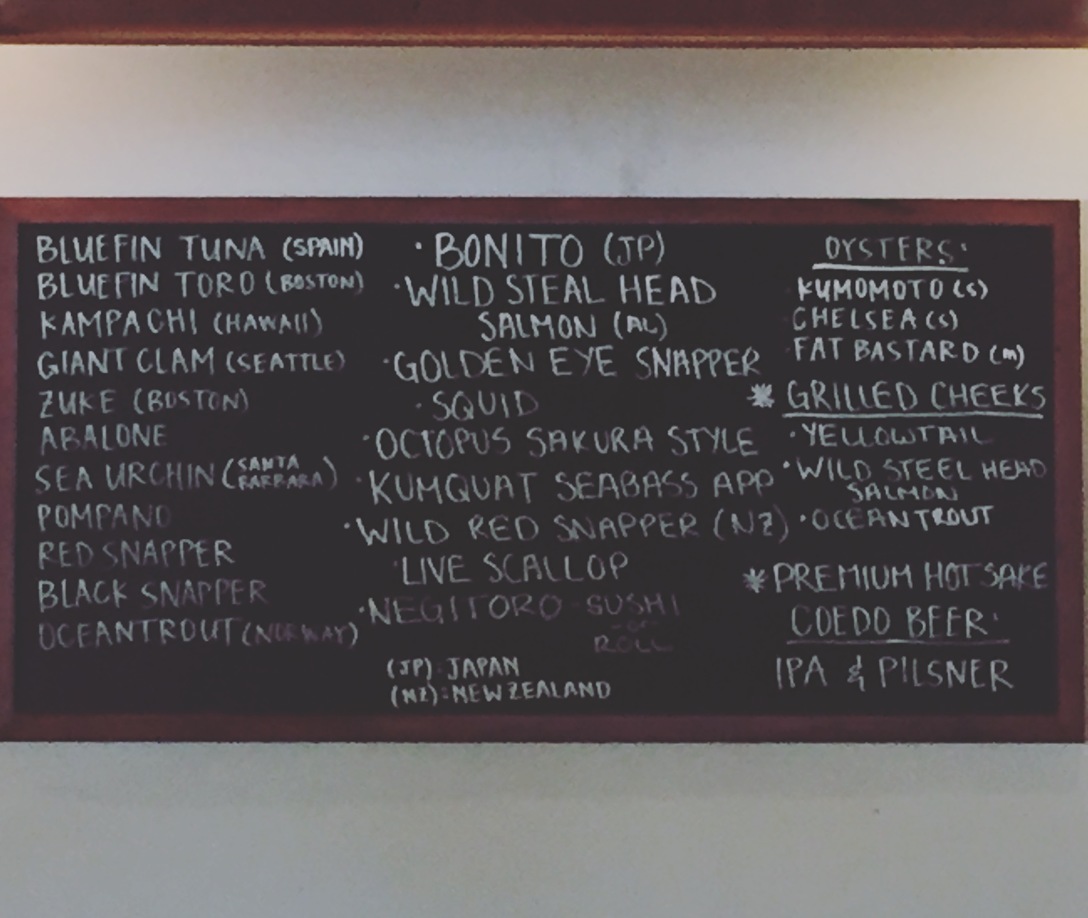 BLUEFIN TUNA (SPAIN)
BLUEFIN TORO (BOSTON)
KAMPACHI (HAWAII)
GIANT CLAM (SEATTLE)
ZUKE (BOSTON)
ABALONE
SEA URCHIN (SANTA BARBARA)
POMPANO
RED SNAPPER
BLACK SNAPPER
OCEANTROUT (NORWAY)
· BONITO (JP)
· WILD STEAL HEAD
SALMON (AL)
· GOLDEN EYE SNAPPER
· SQUID
· OCTOPUS SAKURA STYLE
· KUMQUAT SEABASS APP
· WILD RED SNAPPER (NZ)
· LIVE SCALLOP
· NEGITORO SUSHI
-or-
ROLL
(JP): JAPAN
(NZ): NEW ZEALAND
OYSTERS:
KUMOMOTO (S)
CHELSEA (S)
FAT BASTARD (M)
* GRILLED CHEEKS
· YELLOWTAIL
· WILD STEEL HEAD
SALMON
· OCEANTROUT
* PREMIUM HOT SAKE
COEDO BEER:
IPA & PILSNER